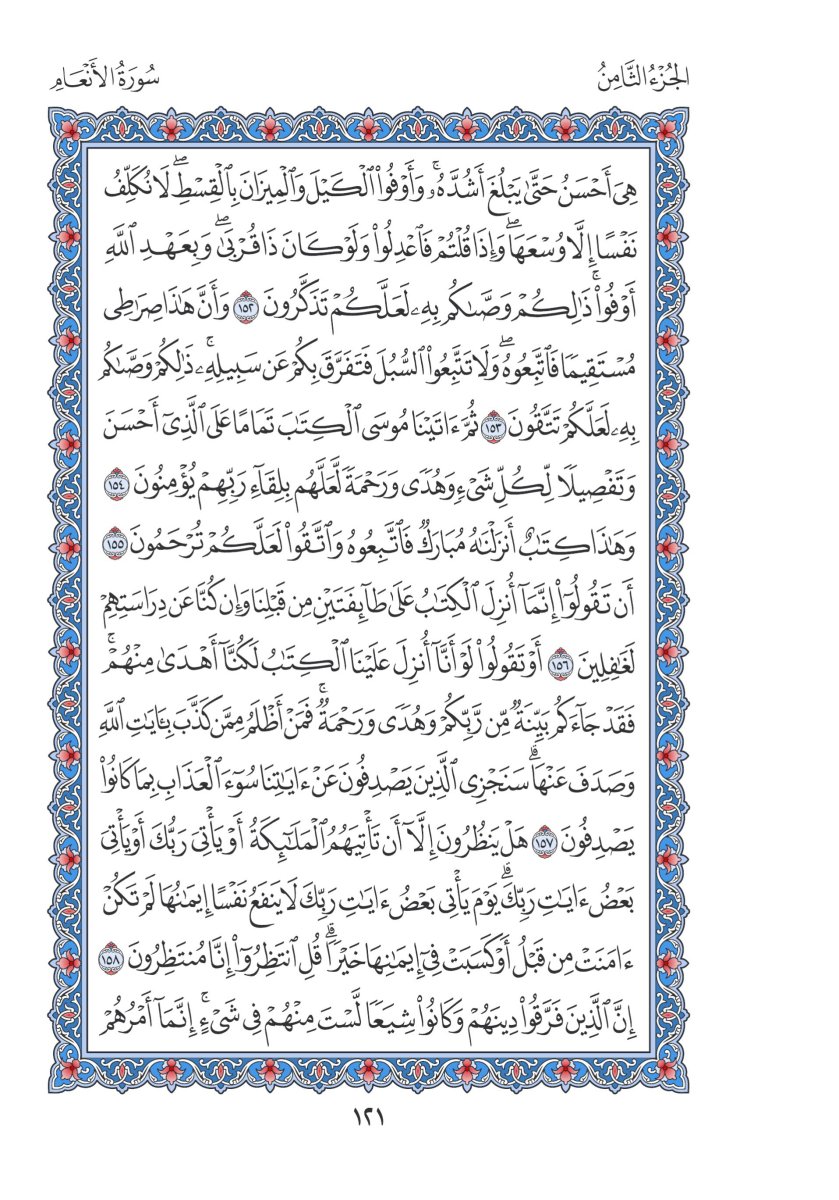 الجُزْءُ الثَّامِنُ
سُورَةُ الأَنْعَامِ
هِىَ أَحْسَنُ حَتَّىٰ يَبْلُغَ أَشُدَّهُۥۚ وَأَوْفُوا۟ ٱلْكَيْلَ وَٱلْمِيزَانَ بِٱلْقِسْطِۖ لَا نُكَلِّفُ
نَفْسًا إِلَّا وُسْعَهَاۖ وَإِذَا قُلْتُمْ فَٱعْدِلُوا۟ وَلَوْ كَانَ ذَا قُرْبَىٰۖ وَبِعَهْدِ ٱللَّهِ
أَوْفُوا۟ۚ ذَٰلِكُمْ وَصَّىٰكُم بِهِۦ لَعَلَّكُمْ تَذَكَّرُونَ ١٥٢ وَأَنَّ هَٰذَا صِرَٰطِى
مُسْتَقِيمًا فَٱتَّبِعُوهُۖ وَلَا تَتَّبِعُوا۟ ٱلسُّبُلَ فَتَفَرَّقَ بِكُمْ عَن سَبِيلِهِۦۚ ذَٰلِكُمْ وَصَّىٰكُم
بِهِۦ لَعَلَّكُمْ تَتَّقُونَ ١٥٣ ثُمَّ ءَاتَيْنَا مُوسَى ٱلْكِتَٰبَ تَمَامًا عَلَى ٱلَّذِىٓ أَحْسَنَ
وَتَفْصِيلًا لِّكُلِّ شَىْءٍ وَهُدًى وَرَحْمَةً لَّعَلَّهُم بِلِقَآءِ رَبِّهِمْ يُؤْمِنُونَ ١٥٤
وَهَٰذَا كِتَٰبٌ أَنزَلْنَٰهُ مُبَارَكٌ فَٱتَّبِعُوهُ وَٱتَّقُوا۟ لَعَلَّكُمْ تُرْحَمُونَ ١٥٥
أَن تَقُولُوٓا۟ إِنَّمَآ أُنزِلَ ٱلْكِتَٰبُ عَلَىٰ طَآئِفَتَيْنِ مِن قَبْلِنَا وَإِن كُنَّا عَن دِرَاسَتِهِمْ
لَغَٰفِلِينَ ١٥٦ أَوْ تَقُولُوا۟ لَوْ أَنَّآ أُنزِلَ عَلَيْنَا ٱلْكِتَٰبُ لَكُنَّآ أَهْدَىٰ مِنْهُمْۚ
فَقَدْ جَآءَكُم بَيِّنَةٌ مِّن رَّبِّكُمْ وَهُدًى وَرَحْمَةٌۚ فَمَنْ أَظْلَمُ مِمَّن كَذَّبَ بِـَٔايَٰتِ ٱللَّهِ
وَصَدَفَ عَنْهَاۗ سَنَجْزِى ٱلَّذِينَ يَصْدِفُونَ عَنْ ءَايَٰتِنَا سُوٓءَ ٱلْعَذَابِ بِمَا كَانُوا۟
يَصْدِفُونَ ١٥٧ هَلْ يَنظُرُونَ إِلَّآ أَن تَأْتِيَهُمُ ٱلْمَلَٰٓئِكَةُ أَوْ يَأْتِىَ رَبُّكَ أَوْ يَأْتِىَ
بَعْضُ ءَايَٰتِ رَبِّكَۗ يَوْمَ يَأْتِى بَعْضُ ءَايَٰتِ رَبِّكَ لَا يَنفَعُ نَفْسًا إِيمَٰنُهَا لَمْ تَكُنْ
ءَامَنَتْ مِن قَبْلُ أَوْ كَسَبَتْ فِىٓ إِيمَٰنِهَا خَيْرًاۗ قُلِ ٱنتَظِرُوٓا۟ إِنَّا مُنتَظِرُونَ ١٥٨
إِنَّ ٱلَّذِينَ فَرَّقُوا۟ دِينَهُمْ وَكَانُوا۟ شِيَعًا لَّسْتَ مِنْهُمْ فِى شَىْءٍۚ إِنَّمَآ أَمْرُهُمْ
١٢١